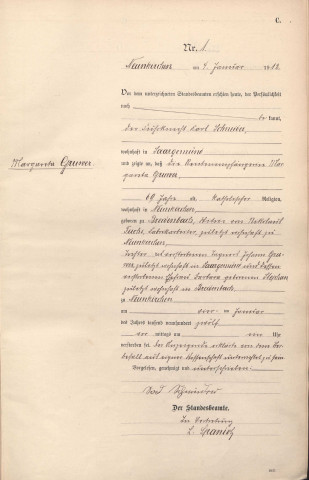 C.
Nr. 1
Neunkirchen am 4. Januar 1912.
Vor dem unterzeichneten Standesbeamten erschien heute, der Persönlichkeit
nach
be kannt,
der Karl
wohnhaft in Saargemünd
und zeigte an, daß die Rentenempfängerin Mar-
gareta Gruner,
Margareta Gruner.
69 Jahre alt, Katholischer Religion,
wohnhaft in Neunkirchen
geboren zu Breidenbach, Witwe von
Fuchs, zuletzt wohnhaft zu
Neunkirchen,
Tochter des verstorbenen Johann Gru-
ner zuletzt wohnhaft in Saargemünd und dessen
verstorbenen Ehefrau Barbara geborenen Stephan
zuletzt wohnhaft in Breidenbach
zu Neunkirchen
am vier ten Januar
des Jahres tausend neunhundert zwölf
vor mittags um ein Uhr
verstorben sei. Der Anzeigende erklärte von dem Ster-
befall aus eigner Wissenschaft unterrichtet zu sein.
Vorgelesen, genehmigt und unterschrieben.
Der Standesbeamte.
In Vertretung